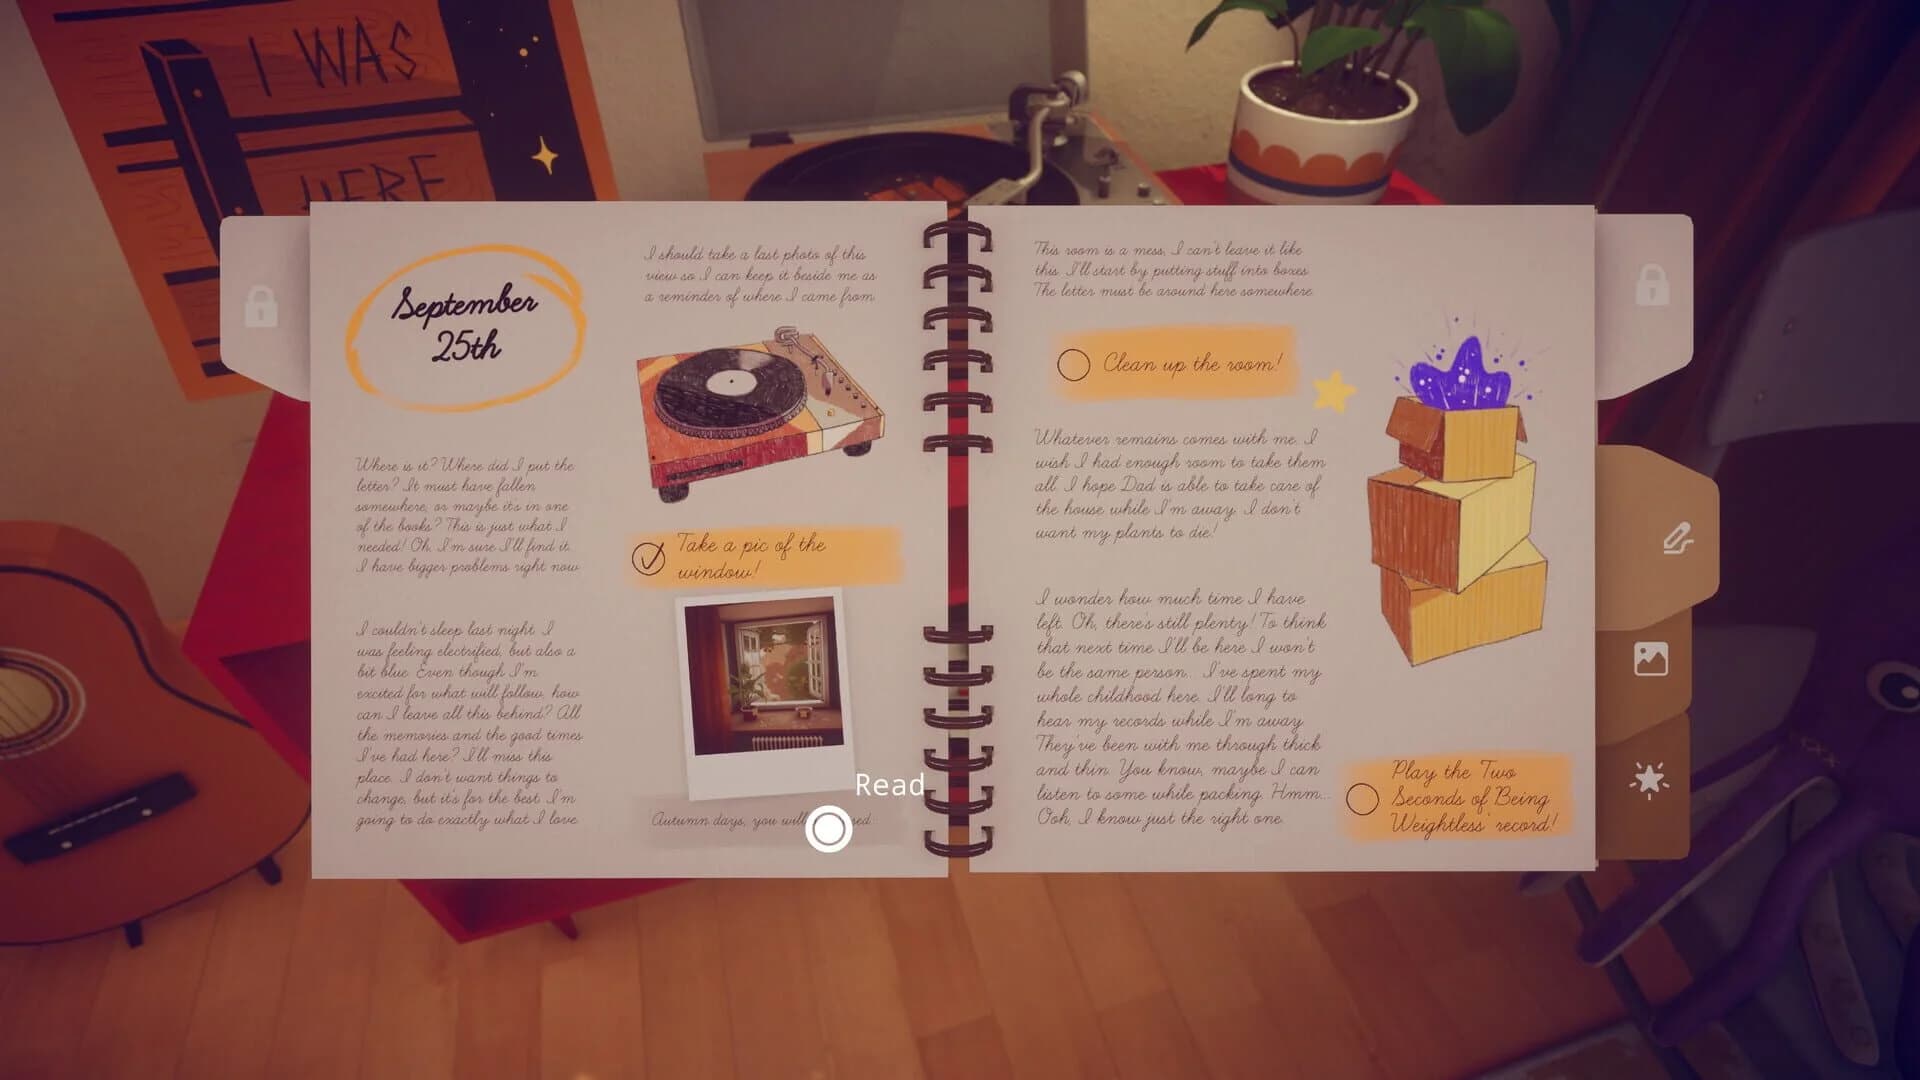 I WAS
HERE
September
25th
Where is it? Where did I put the
letter? It must have fallen
somewhere, or maybe it's in one
of the books? This is just what I
needed! Oh, I'm sure I'll find it.
I have bigger problems right now.
I couldn't sleep last night. I
was feeling electrified, but also a
bit blue. Even though I'm
excited for what will follow, how
can I leave all this behind? All
the memories and the good times
I've had here? I'll miss this
place. I don't want things to
change, but it's for the best. I'm
going to do exactly what I love.
I should take a last photo of this
view so I can keep it beside me as
a reminder of where I came from.
Take a pic of the
window!
Read
Autumn days, you will
This room is a mess, I can't leave it like
this. I'll start by putting stuff into boxes.
The letter must be around here somewhere.
Clean up the room!
Whatever remains comes with me. I
wish I had enough room to take them
all. I hope Dad is able to take care of
the house while I'm away. I don't
want my plants to die!
I wonder how much time I have
left. Oh, there's still plenty! To think
that next time I'll be here I won't
be the same person... I've spent my
whole childhood here. I'll long to
hear my records while I'm away.
They've been with me through thick
and thin. You know, maybe I can
listen to some while packing. Hmm...
Ooh, I know just the right one.
Play the 'Two
Seconds of Being
Weightless' record!